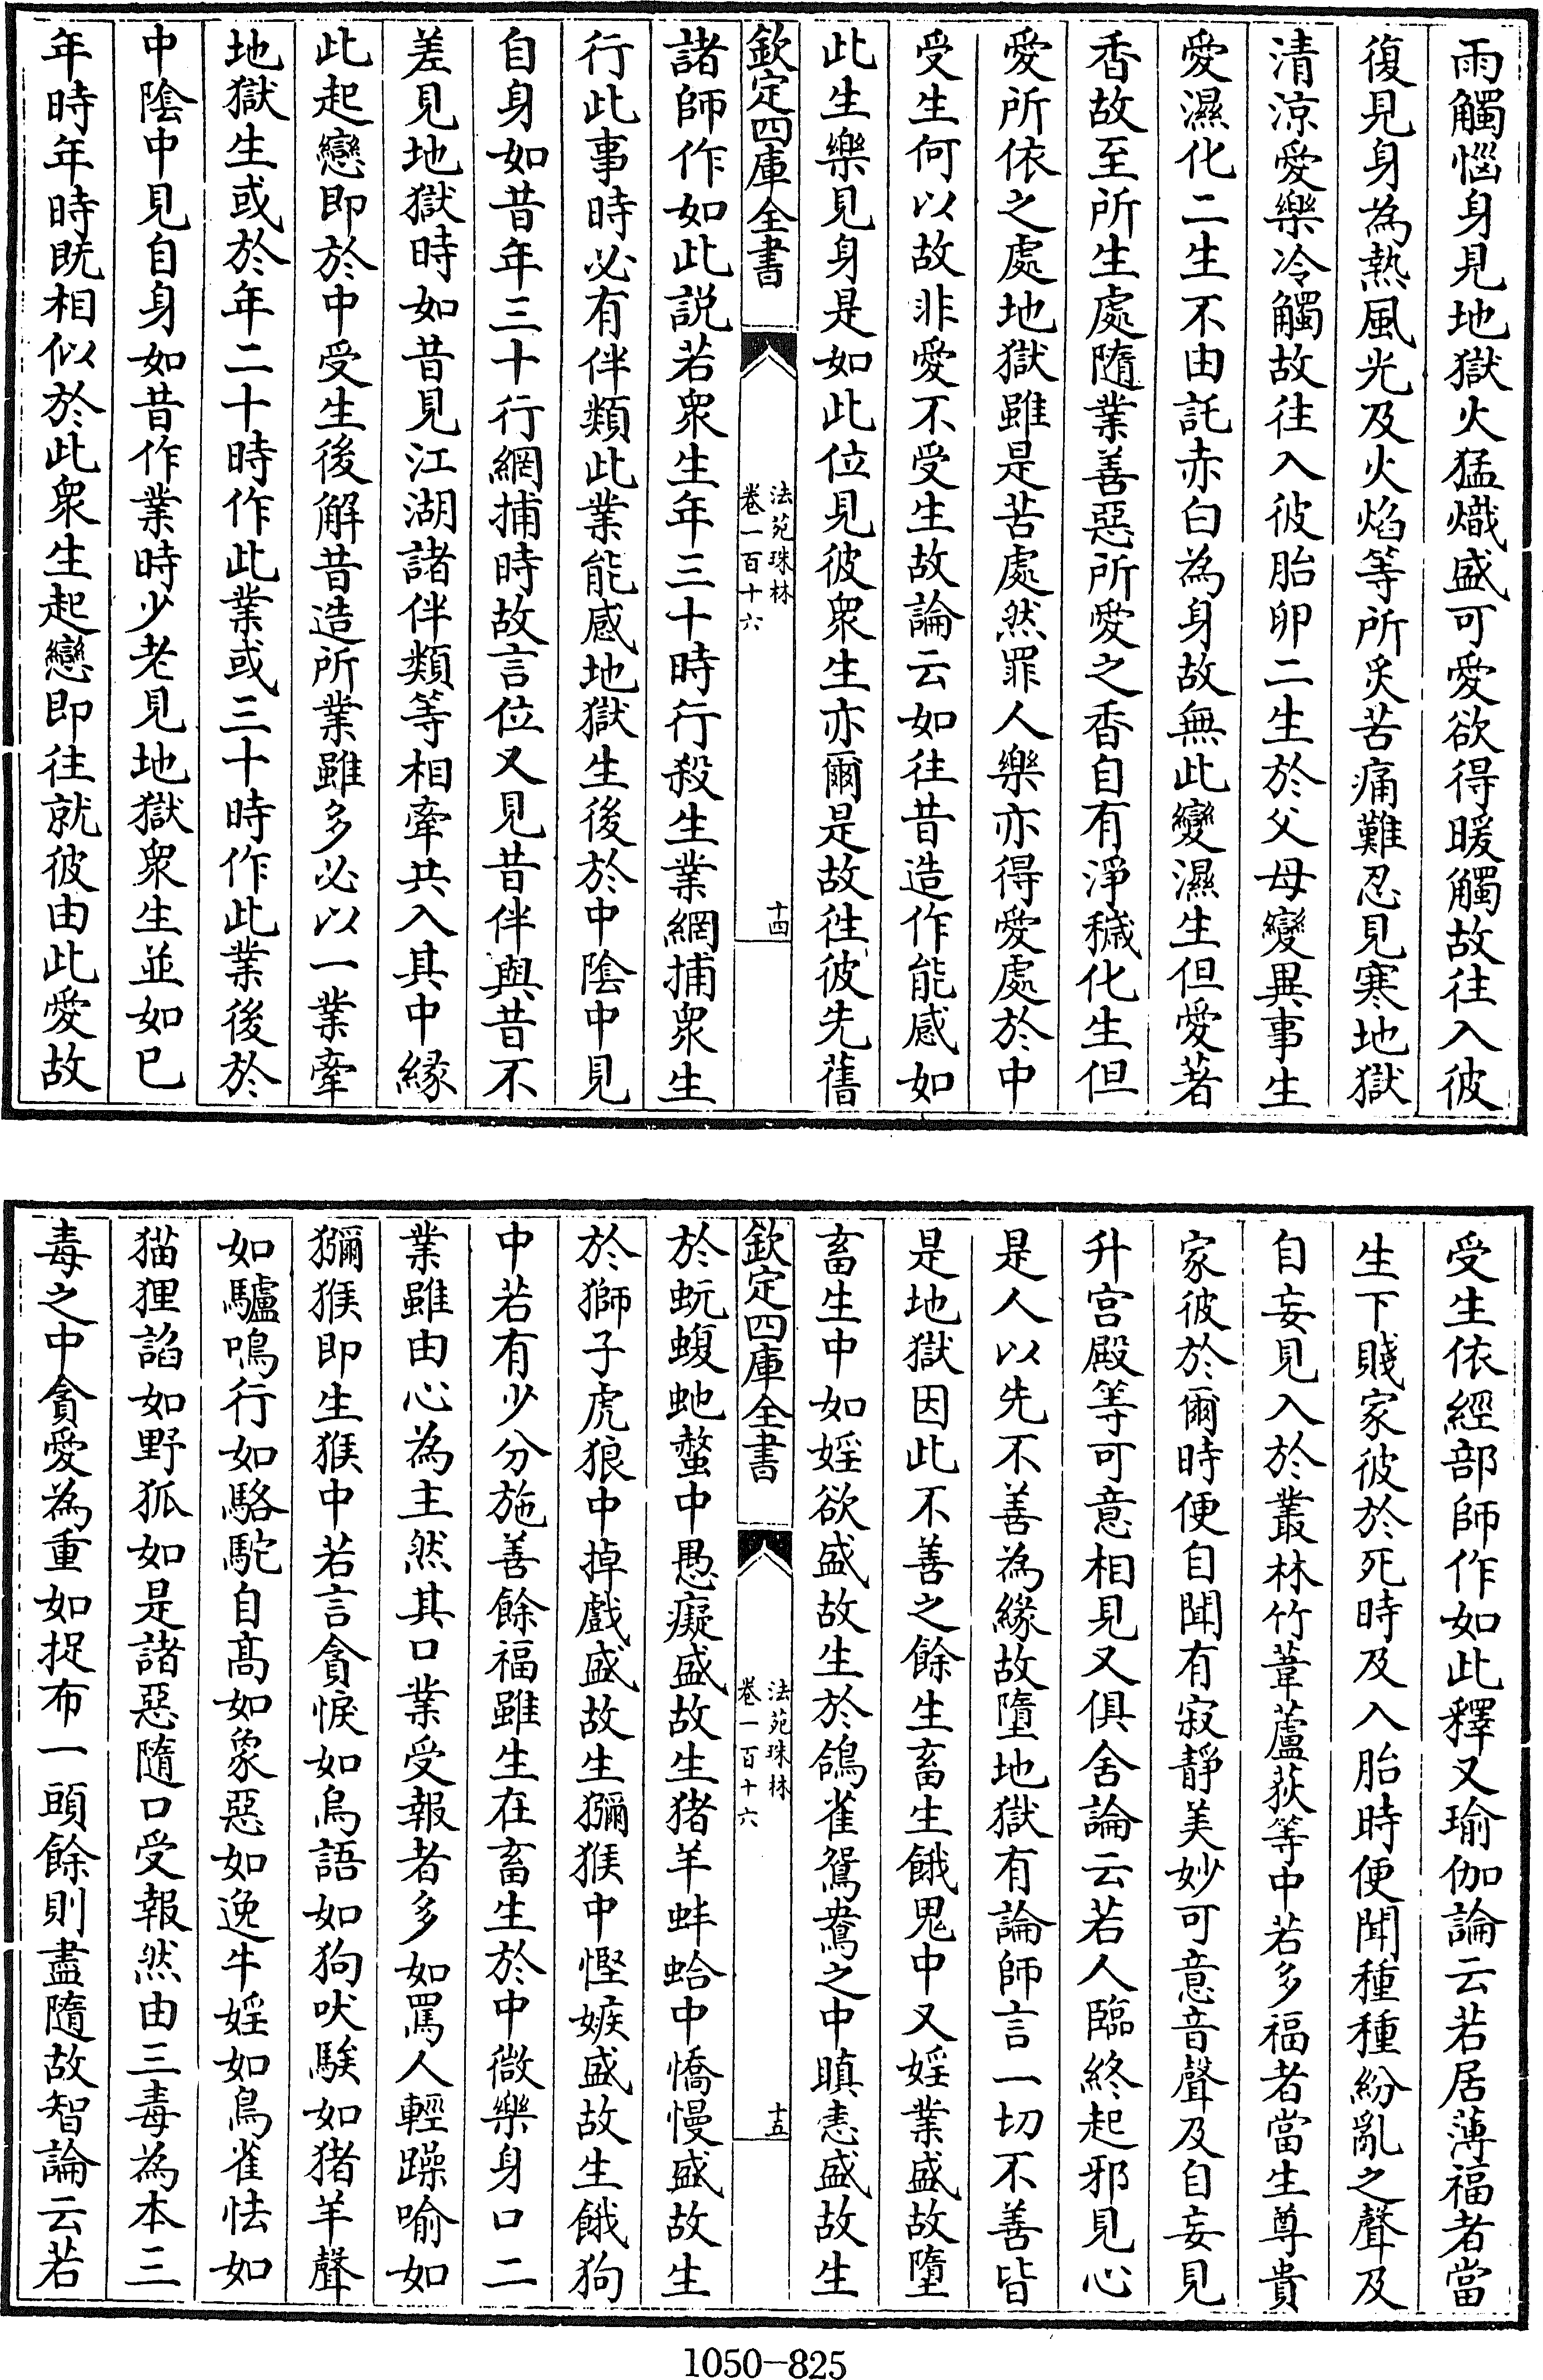 雨觸惱身見地獄火猛熾盛可愛欲得暖觸故往入彼
復見身為熱風光及火焰等所炙苦痛難忍見寒地獄
清涼愛樂冷觸故往入彼胎卵二生於父母變異事生
愛濕化二生不由託赤白為身故無此變濕生但愛著
香故至所生處隨業善惡所愛之香自有淨穢化生但
愛所依之處地獄雖是苦處然罪人樂亦得愛處於中
受生何以故非愛不受生故論云如往昔造作能感如
此生樂見身是如此位見彼衆生亦爾是故徃彼先舊
欽定四庫全書
法苑珠林
卷一百十六
十四
諸師作如此説若衆生年三十時行殺生業網捕衆生
行此事時必有伴類此業能感地獄生後於中陰中見
自身如昔年三十行網捕時故言位又見昔伴與昔不
差見地獄時如昔見江湖諸伴類等相牽共入其中縁
此起戀即於中受生後解昔造所業雖多必以一業牽
地獄生或於年二十時作此業或三十時作此業後於
中陰中見自身如昔作業時少老見地獄衆生並如已
年時年時既相似於此衆生起戀即往就彼由此愛故
受生依經部師作如此釋又瑜伽論云若居薄福者當
生下賤家彼於死時及入胎時便聞種種紛亂之聲及
自妄見入於叢林竹葦蘆荻等中若多福者當生尊貴
家彼於爾時便自聞有寂靜美妙可意音聲及自妄見
升宫殿等可意相見又俱舍論云若人臨終起邪見心
是人以先不善為緣故墮地獄有論師言一切不善皆
是地獄因此不善之餘生畜生餓鬼中又婬業盛故墮
畜生中如婬欲盛故生於鴿雀鴛鴦之中瞋恚盛故生
欽定四庫全書
法苑珠林
卷一百十六
十五
於蚖蝮虵螫中愚癡盛故生猪羊蚌蛤中憍慢盛故生
於獅子虎狼中掉戲盛故生獼猴中慳嫉盛故生餓狗
中若有少分施善餘福雖生在畜生於中微樂身口二
業雖由心為主然其口業受報者多如罵人輕躁喻如
獼猴即生猴中若言貪悷如烏語如狗吠騃如猪羊聲
如驢鳴行如駱駝自髙如象惡如逸牛婬如鳥雀怯如
猫狸諂如野狐如是諸惡隨口受報然由三毒為本三
毒之中貪愛為重如捉布一頭餘則盡隨故智論云若
1050-825